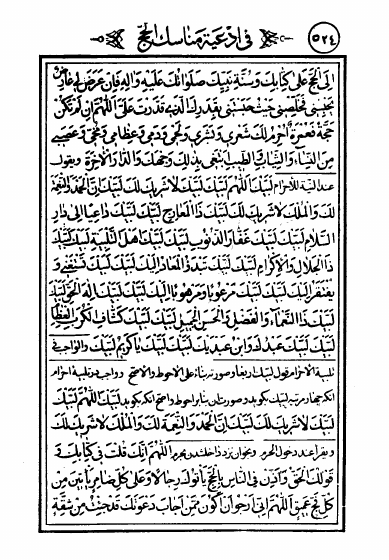 فى ادعية مناسك الحج
٥٢٤
الى الحج على كتابك وسنة نبيك صلواتك عليه واله فان عرض لى عارض
يحبسنى فحلنى حيث حبستنى بقدرك الذى قدرت على اللهم ان لم تكن
حجة فعمرة احرم لك شعرى وبشرى ولحمى ودمى وعظامى ومخى وعصبى
من النساء والثياب والطيب ابتغى بذلك وجهك والدار الاخرة ويقول
عند التلبية للاحرام لبيك اللهم لبيك لبيك لا شريك لك لبيك ان الحمد والنعمة
لك والملك لا شريك لك لبيك ذا المعارج لبيك لبيك داعيا الى دار
السلام لبيك لبيك غفار الذنوب لبيك لبيك اهل التلبية لبيك لبيك
ذا الجلال والاكرام لبيك لبيك تبدئ والمعاد اليك لبيك لبيك تستغنى و
يفتقر اليك لبيك لبيك مرغوبا ومرهوبا اليك لبيك لبيك اله الحق لبيك
لبيك ذا النعماء والفضل الحسن الجميل لبيك لبيك كشاف الكرب العظام
لبيك لبيك عبدك وابن عبديك لبيك لبيك يا كريم لبيك والواجب فى
تلبية الاحرام قول لبيك اربعا وصورته بناء على الاحوط والاصح
انكه چهار مرتبه لبيك بگويد وصورتش بنابر احوط واصح انكه بگويد لبيك اللهم لبيك
لبيك لا شريك لك لبيك ان الحمد والنعمة لك والملك لا شريك لك
ويقرأ عند دخول الحرم وبخواند نزد داخل شدن بحرم اللهم انك قلت فى كتابك و
قولك الحق واذن فى الناس بالحج يأتوك رجالا وعلى كل ضامر يأتين من
كل فج عميق اللهم انى ارجو ان اكون ممن اجاب دعوتك قد جئت من شقة